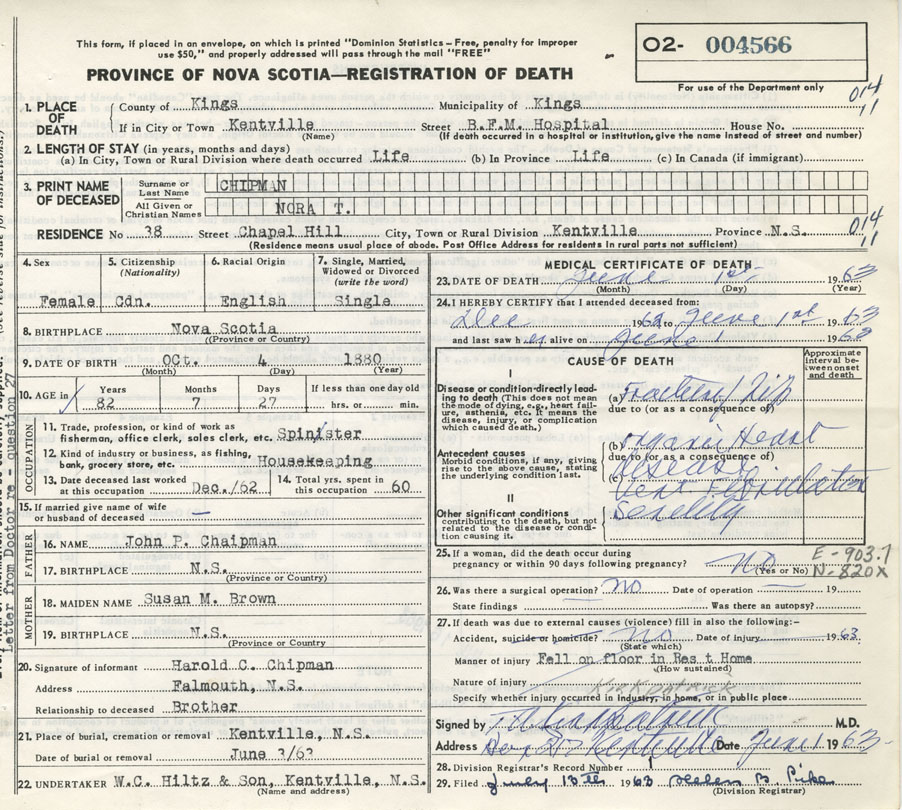 This form, if placed in an envelope, on which is printed "Dominion Statistics – Free, penalty for improper
use $50," and properly addressed will pass through the mail "FREE"
O2- 004566
PROVINCE OF NOVA SCOTIA—REGISTRATION OF DEATH
For use of the Department only
1. PLACE OF DEATH County of Kings Municipality of Kings 014
If in City or Town Kentville Street B.F.M. Hospital House No. 11
(Name) (If death occurred in a hospital or institution, give the name instead of street and number)
2. LENGTH OF STAY (in years, months and days)
(a) In City, Town or Rural Division where death occurred Life (b) In Province Life (c) In Canada (if immigrant)
3. PRINT NAME OF DECEASED Surname or Last Name CHIPMAN
All Given or Christian Names NORA T.
RESIDENCE No 38 Street Chapel Hill City, Town or Rural Division Kentville Province N.S. 014 11
(Residence means usual place of abode. Post Office Address for residents in rural parts not sufficient)
4. Sex 5. Citizenship (Nationality) 6. Racial Origin 7. Single, Married, Widowed or Divorced (write the word)
Female Cdn. English Single
8. BIRTHPLACE Nova Scotia
(Province or Country)
9. DATE OF BIRTH Oct. 4 1880
(Month) (Day) (Year)
10. AGE in Years Months Days If less than one day old
82 7 27 hrs. or min.
OCCUPATION
11. Trade, profession, or kind of work as
fisherman, office clerk, sales clerk, etc. Spinister
12. Kind of industry or business, as fishing,
bank, grocery store, etc. Housekeeping
13. Date deceased last worked at this occupation Dec./62 14. Total yrs. spent in this occupation 60
15. If married give name of wife
or husband of deceased —
FATHER
16. NAME John P. Chaipman
17. BIRTHPLACE N.S.
(Province or Country)
MOTHER
18. MAIDEN NAME Susan M. Brown
19. BIRTHPLACE N.S.
(Province or Country)
20. Signature of informant Harold C. Chipman
Address Falmouth, N.S.
Relationship to deceased Brother
21. Place of burial, cremation or removal Kentville, N.S.
Date of burial or removal June 3/63
22. UNDERTAKER W.C. Hiltz & Son, Kentville, N.S.
(Name and address)
Letter from Doctor re - question 27
MEDICAL CERTIFICATE OF DEATH
23. DATE OF DEATH June 1st 1963
(Month) (Day) (Year)
24. I HEREBY CERTIFY that I attended deceased from:
Dec 1962 to June 1st 1963
and last saw her alive on June 1 196
CAUSE OF DEATH
Approximate interval between onset and death
I
Disease or condition directly leading to death (This does not mean the mode of dying, e.g., heart failure, asthenia, etc. It means the disease, injury, or complication which caused death.)
(a) Fractured Hip
due to (or as a consequence of)
Antecedent causes
Morbid conditions, if any, giving rise to the above cause, stating the underlying condition last.
(b) Organic Heart
due to (or as a consequence of)
Disease
(c) Vent Fibrillation
II
Other significant conditions
contributing to the death, but not related to the disease or condition causing it.
Senility
25. If a woman, did the death occur during
pregnancy or within 90 days following pregnancy? No
(Yes or No)
E-903.7
N-820X
26. Was there a surgical operation? No Date of operation 19
State findings Was there an autopsy?
27. If death was due to external causes (violence) fill in also the following:–
Accident, suicide or homicide? No Date of injury 1963
(State which)
Manner of injury Fell on floor in Rest Home
(How sustained)
Nature of injury KIRKPATRICK
Specify whether injury occurred in industry, in home, or in public place
Signed by M.D.
Address Kentville Date June 1 1963
28. Division Registrar's Record Number
29. Filed 13th 1963 Helen B. Pike
(Division Registrar)